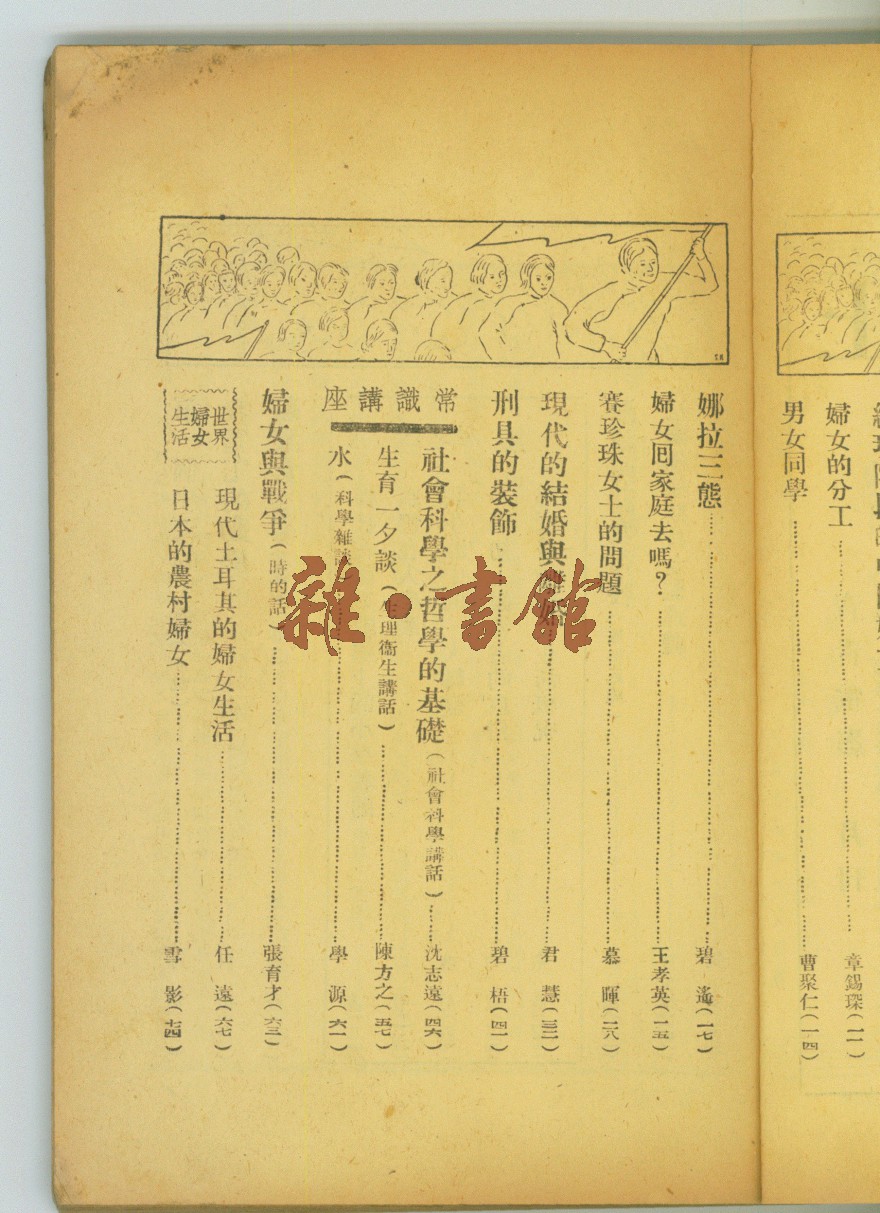 婦女的分工……章錫琛(一一)
男女同學……曹聚仁(一四)
娜拉三態……碧遙(一七)
婦女囘家庭去嗎?……王孝英(二五)
賽珍珠女士的問題……慕暉(二八)
現代的結婚與……君慧(三二)
刑具的裝飾……碧梧(四一)
常識講座
社會科學之哲學的基礎(社會科學講話)……沈志遠(四六)
生育一夕談(生理衞生講話)……陳方之(五七)
水(科學雜談)……學源(六一)
婦女與戰爭(時的話)……張育才(六三)
世界婦女生活
現代土耳其的婦女生活……任遠(六七)
日本的農村婦女……雪影(七四)
雜·書館